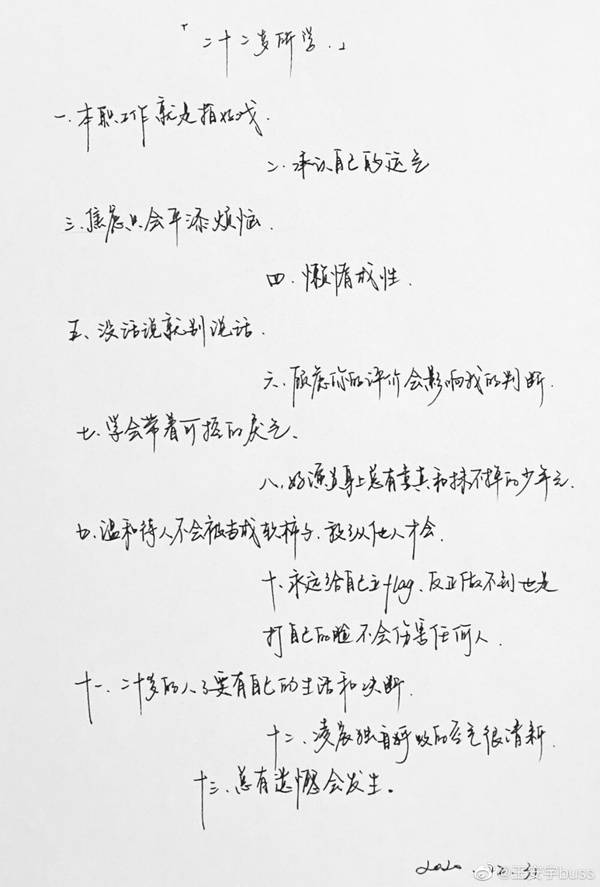 「二十二岁所学.」
一.本职工作就是拍好戏.
二.承认自己的运气
三.焦虑只会平添烦恼.
四.懒惰成性.
五、没话说就别说话.
六.顾虑你的评价会影响我的判断.
七.学会带着可控的戾气.
八.好演员身上总有童真和抹不掉的少年气.
九.温和待人不会被当成软柿子、放纵他人才会.
十.永远给自己立flag、反正做不到也是
打自己的脸不会伤害任何人.
十一.二十多的人了要有自己的生活和决断.
十二、凌晨独自呼吸的空气很清新.
十三.总有遗憾会发生。
2020.
@王安宇buss